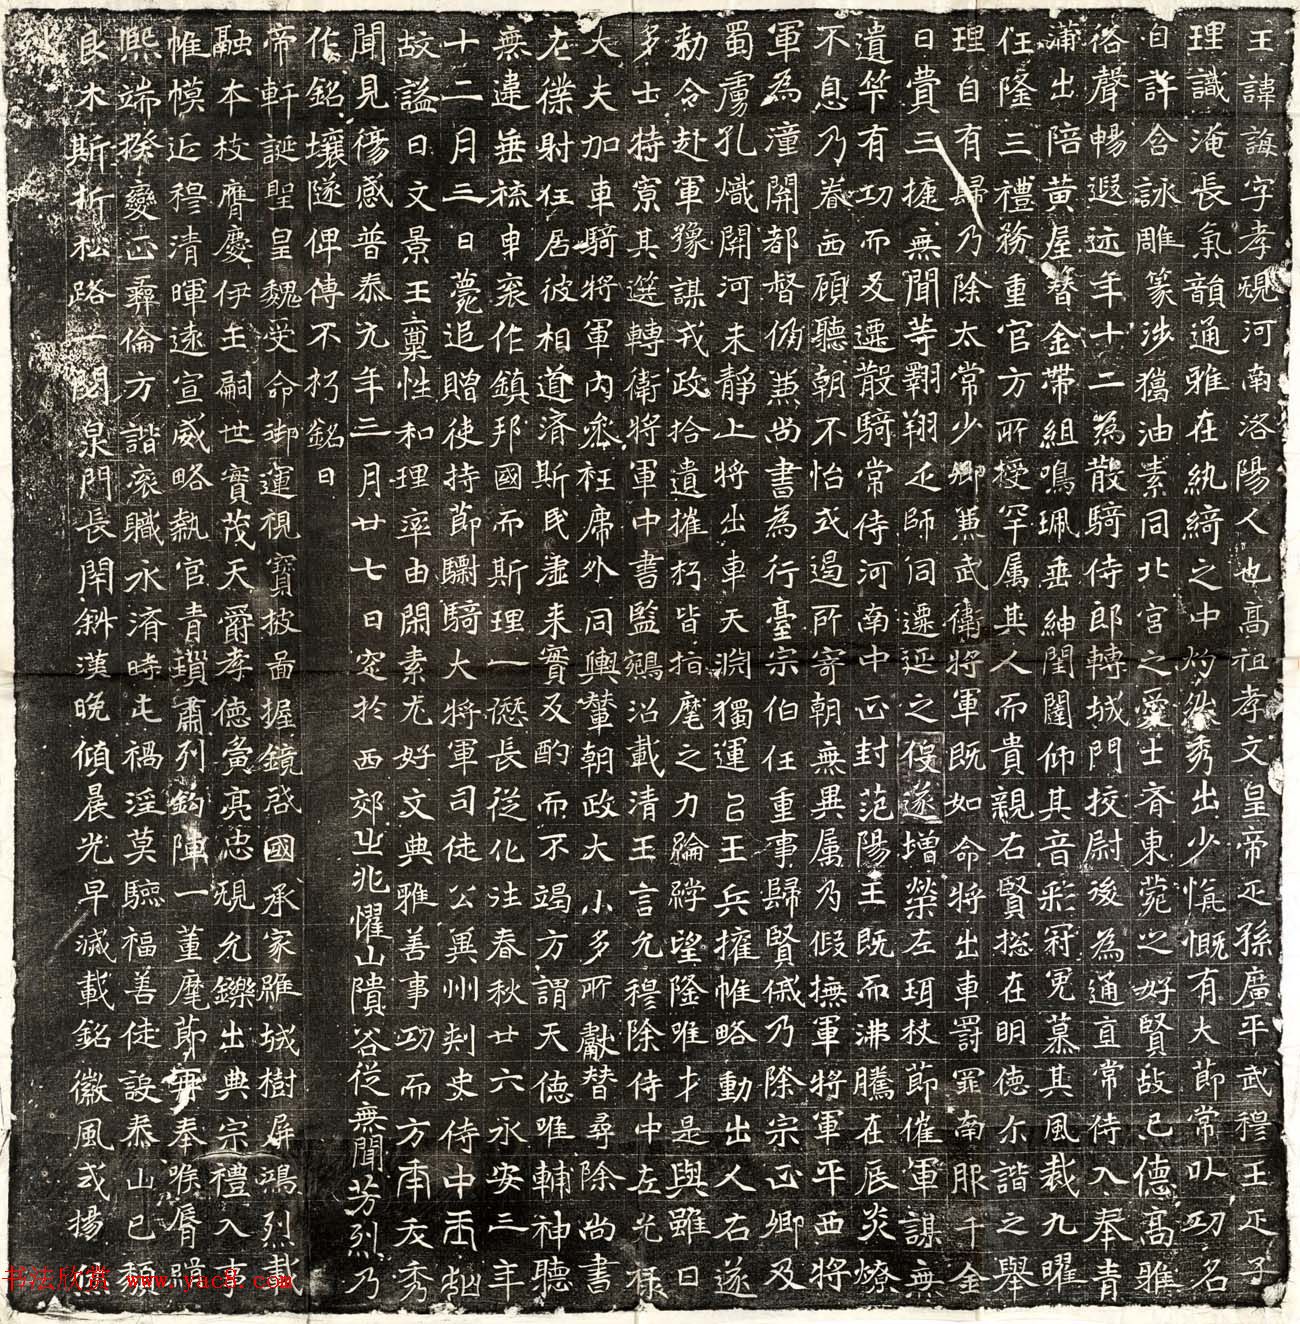 王諱誨字孝規河南洛陽人也高祖孝文皇帝之孫廣平武穆王之子
理識淹長氣韻通雅在紈綺之中灼然秀出少慷慨有大節常以功名
自許含詠雕篆涉獵油素同北宮之愛士齊東菀之好賢故已德高雅
俗聲暢遐迩年十二為散騎侍郎轉城門挍尉後為通直常侍入奉青
蒲出陪黃屋簪金帶組鳴珮垂紳閨闈仰其音彩冠冕慕其風裁九曜
任隆三禮務重官方所授罕属其人而貴親右賢揔在明德尒諧之舉
理自有歸乃除太常少卿兼武衛將軍既如命將出車罰罪南服千金
日費三捷無聞等翱翔之師同遷延之役遂增榮左珥杖節催軍謀無
遺筭有功而反遷散騎常侍河南中正封范陽王既而沸騰在辰炎燎
不息乃眷西顧聽朝不怡式遏所寄朝無異属乃假撫軍將軍平西將
軍為潼關都督仍兼尚書為行臺宗伯任重事歸賢戚乃除宗正卿及
蜀虜孔熾關河未靜上將出車天淵獨運以王兵擁帷略動出人右遂
勑令赴軍豫謀戎政拾遺摧朽皆指麾之力綸綍望隆唯才是與雖曰
多士特寡其選轉衛將軍中書監鵷沼載清王言允穆除侍中左光祿
大夫加車騎將軍內參枉席外同輿輦朝政大小多所獻替尋除尚書
左僕射任居彼相道濟斯民虛来實反酌而不竭方謂天德唯輔神聽
無違垂旒申袞作鎮邦國而斯理一愆長從化往春秋廿六永安三年
十二月三日薨追贈使持節驃騎大將軍司徒公冀州刺史侍中王如
故謚曰文景王稟性和理率由閑素尤好文典雅善事功而方申友秀
聞見傷感普泰元年三月廿七日窆於西郊之兆懼山隤谷從無聞芳烈乃
作銘壤隧俾傳不朽銘曰
帝軒誕聖皇魏受命御運視寶披圖握鏡啟國承家維城樹屏鴻烈載
融本枝膺慶伊王嗣世實茂天爵孝德彝亮忠規允鑠出典宗禮入事
帷幙近穆清暉遠宣威略執官青瑣肅列鈎陣一董麾節再奉喉脣緝
熙端揆變正彝倫方諧袞職永濟時屯禍淫莫驗福善徒設泰山已頹
良木斯折松路一閟泉門長閇斜漢晚傾晨光早滅載銘徽風式揚
书法欣赏 www.yac8.com